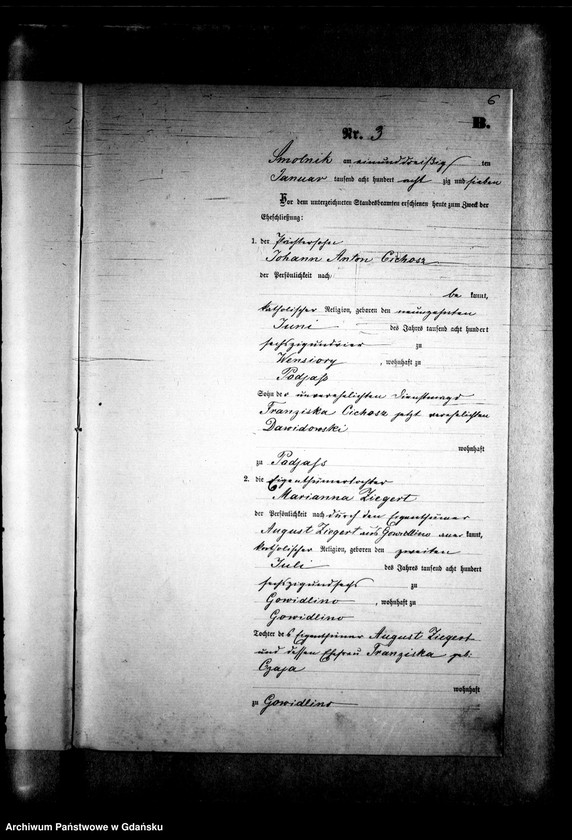 6
B.
Nr. 3
Smolnik am einunddreißig ten
Januar tausend acht hundert acht zig und sieben
Vor dem unterzeichneten Standesbeamten erschienen heute zum Zweck der
Eheschließung:
1. der Pächtersohn
Johann Anton Cichosz
der Persönlichkeit nach
be kannt,
katholischer Religion, geboren den neunzehnten
Juni des Jahres tausend acht hundert
sechszigundvier zu
Wensiory, wohnhaft zu
Podjaß
Sohn der unverehelichten Dienstmagd
Franziska Cichosz jetzt verehelichten
Dawidowski
wohnhaft
zu Podjaß
2. die Eigenthümertochter
Marianna Ziegert
der Persönlichkeit nach durch den Eigenthümer
August Ziegert aus Gowidlino aner kannt,
katholischer Religion, geboren den zweiten
Juli des Jahres tausend acht hundert
sechszigundsechs zu
Gowidlino, wohnhaft zu
Gowidlino
Tochter des Eigenthümer August Ziegert
und dessen Ehefrau Franziska geb.
Czaja
wohnhaft
zu Gowidlino
Archiwum Państwowe w Gdańsku